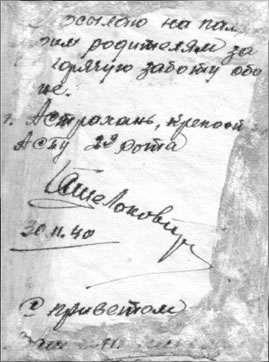 жылаю на пам
зим родителям за
горячую заботу обо
не.
г. Астрахань, Крепост
АСПУ 2я рота
30.11.40
С приветом